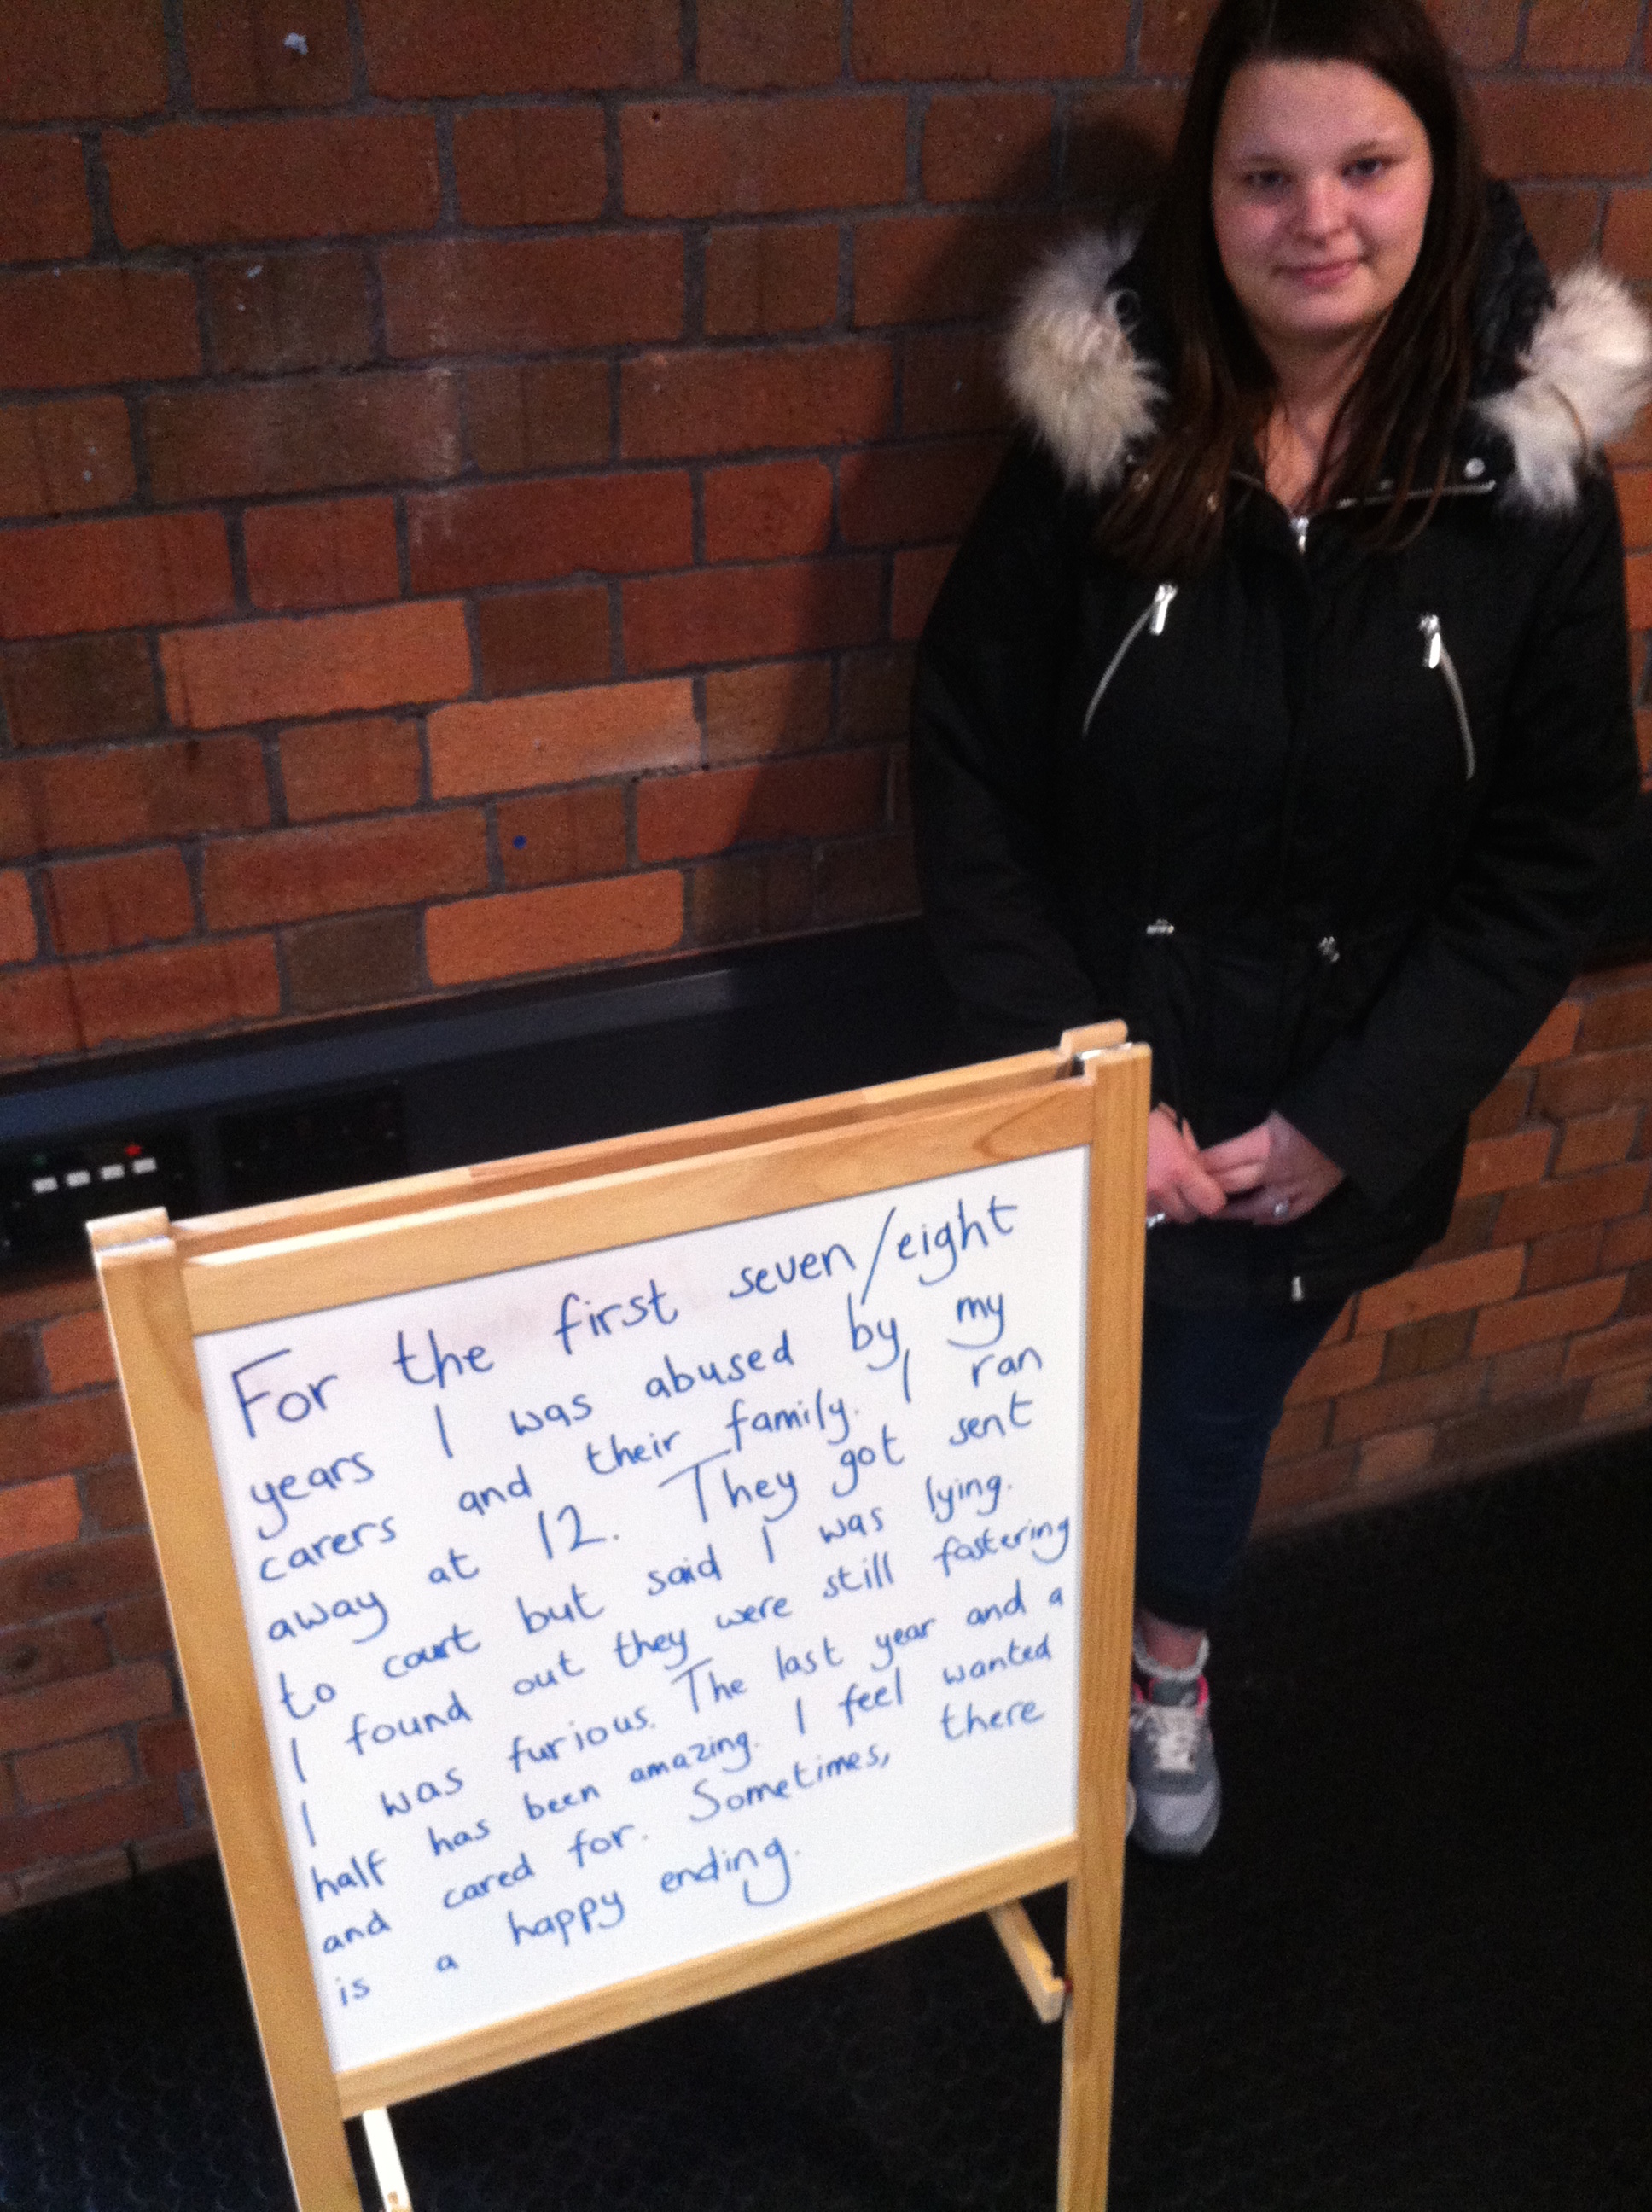 For the first seven/eight
years I was abused by my
carers and their family. I ran
away at 12. They got sent
to court but said I was lying.
I found out they were still fostering
I was furious. The last year and a
half has been amazing. I feel wanted
and cared for. Sometimes, there
is a happy ending.